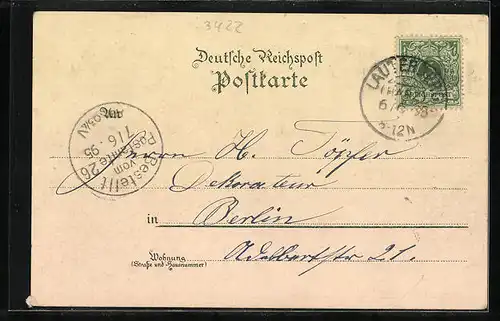 3422
Deutsche Reichspost
Postkarte
LAUTERB
(HARZ)
6/6 95
8-12N
An
Bestellt
vom
Postamte 26
7/6. 95
Herrn H. Töpfer
Dekorateur
in Berlin
Wohnung Adalbertstr 21.
(Straße und Hausnummer)